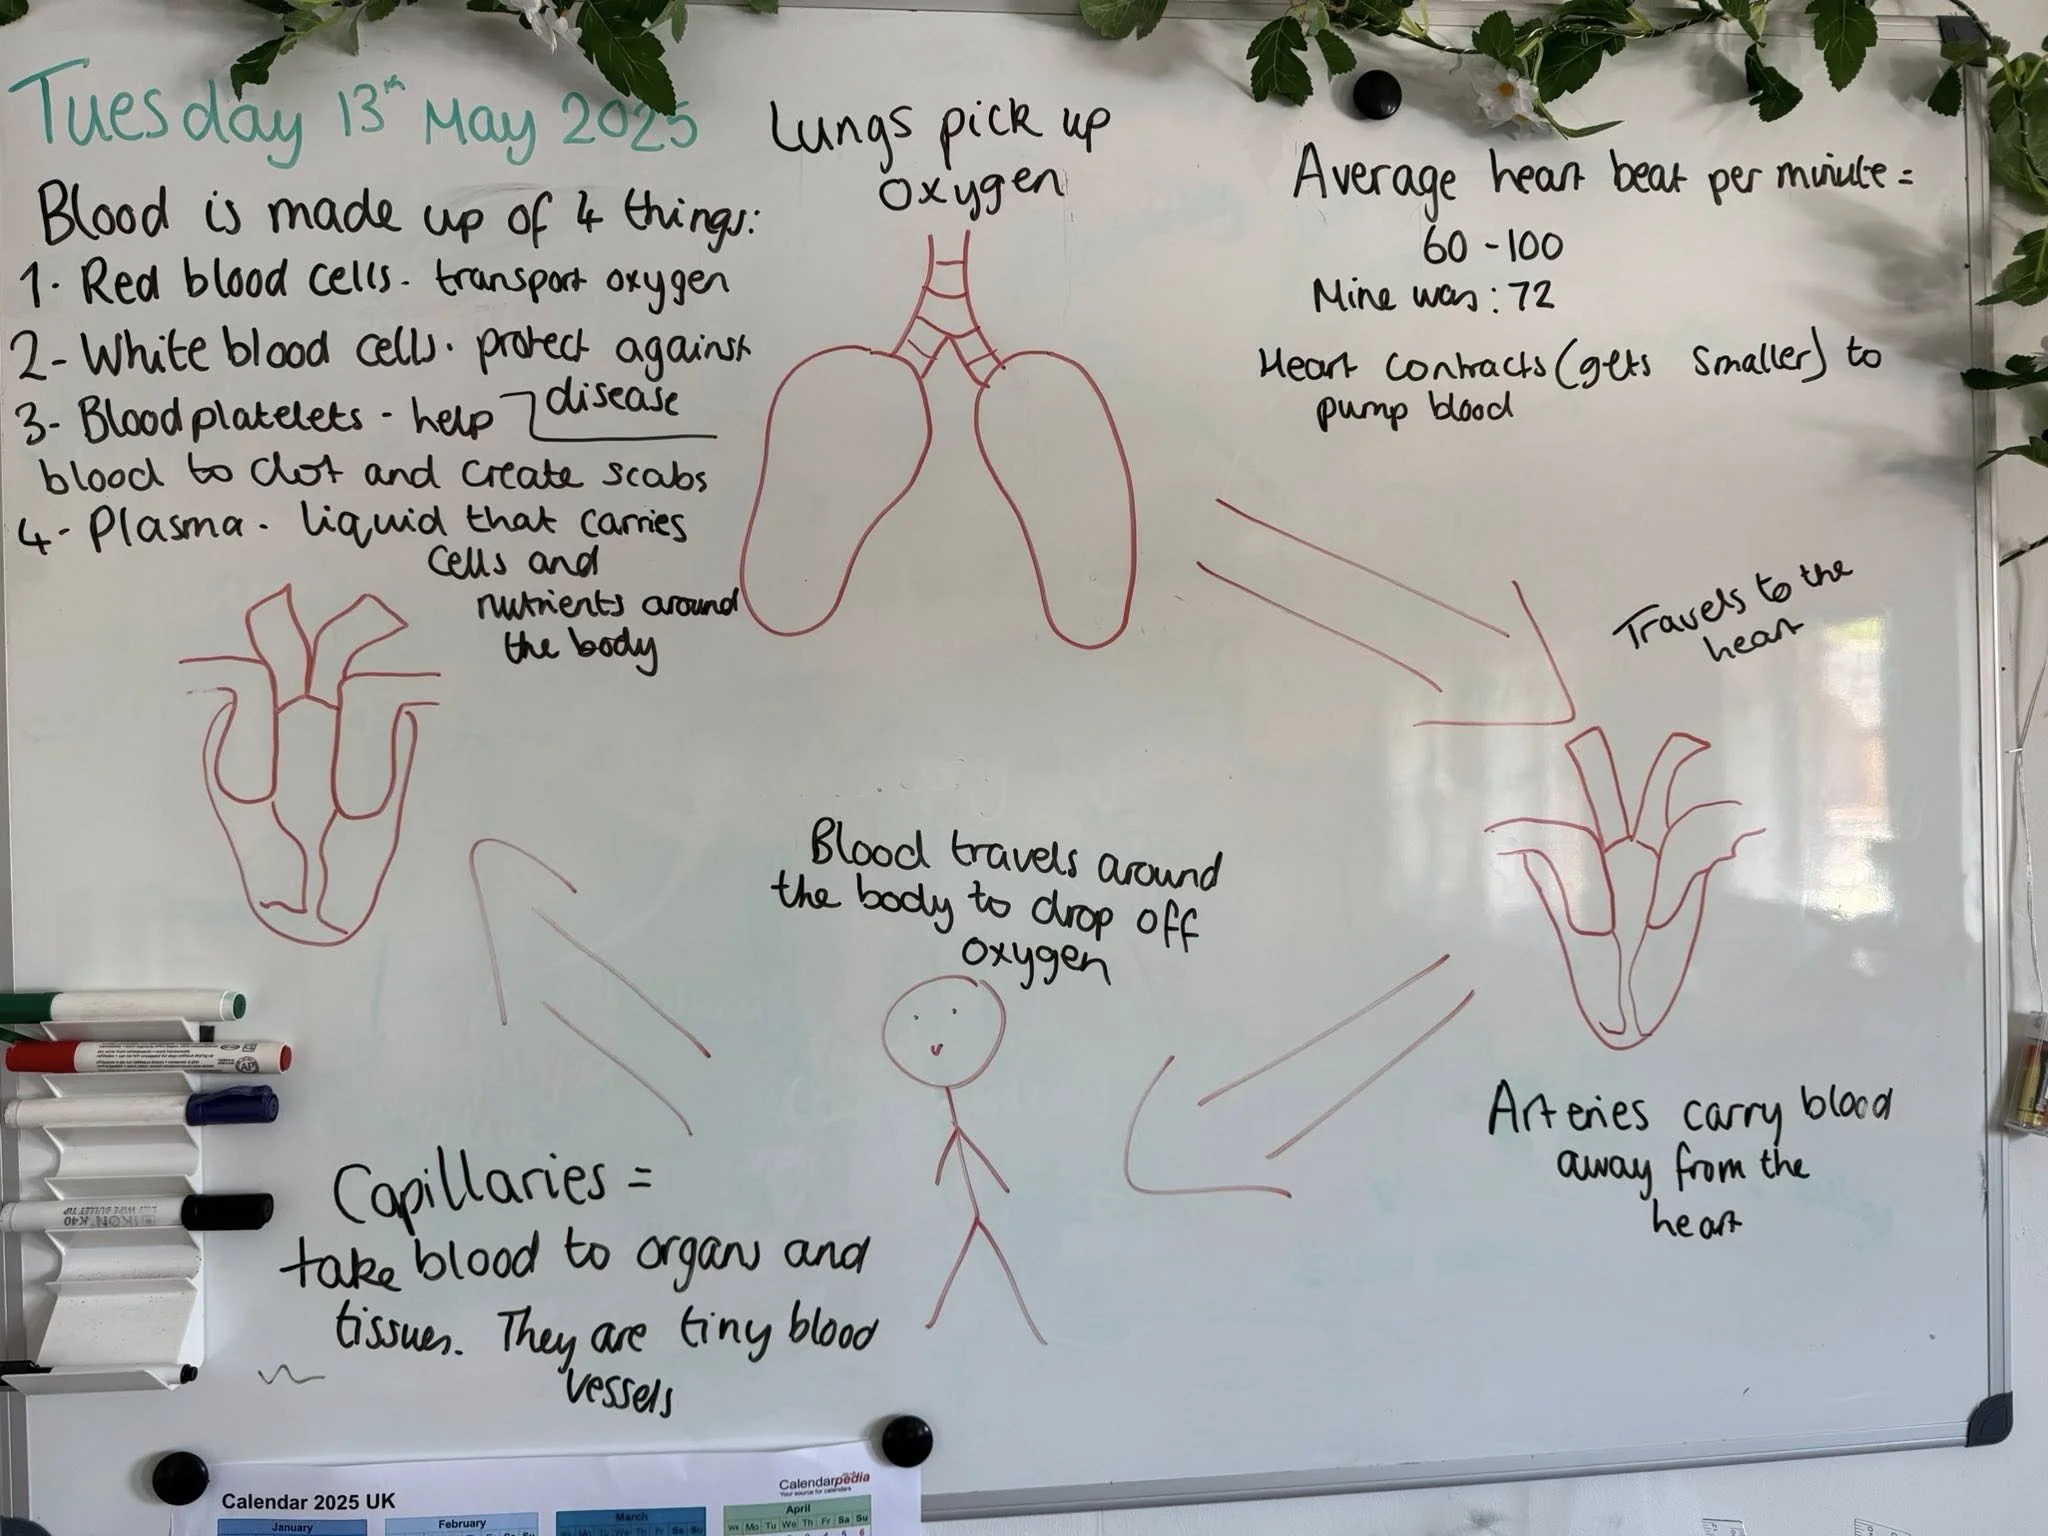 Tuesday 13th May 2025
Blood is made up of 4 things:
1. Red blood cells - transport oxygen
2 - White blood cells - protect against
disease
3 - Blood platelets - help
blood to clot and create scabs
4 - Plasma - liquid that carries
cells and
nutrients around
the body
Lungs pick up
oxygen
Average heart beat per minute =
60 - 100
Mine was: 72
Heart contracts (gets smaller) to
pump blood
Travels to the
heart
Blood travels around
the body to drop off
oxygen
Arteries carry blood
away from the
heart
Capillaries =
take blood to organs and
tissues. They are tiny blood
vessels
AP
K40
Calendarpedia
Your source for calendars
Calendar 2025 UK
January
February
March
April
Wk Mo Tu We Th Fr Sa Su